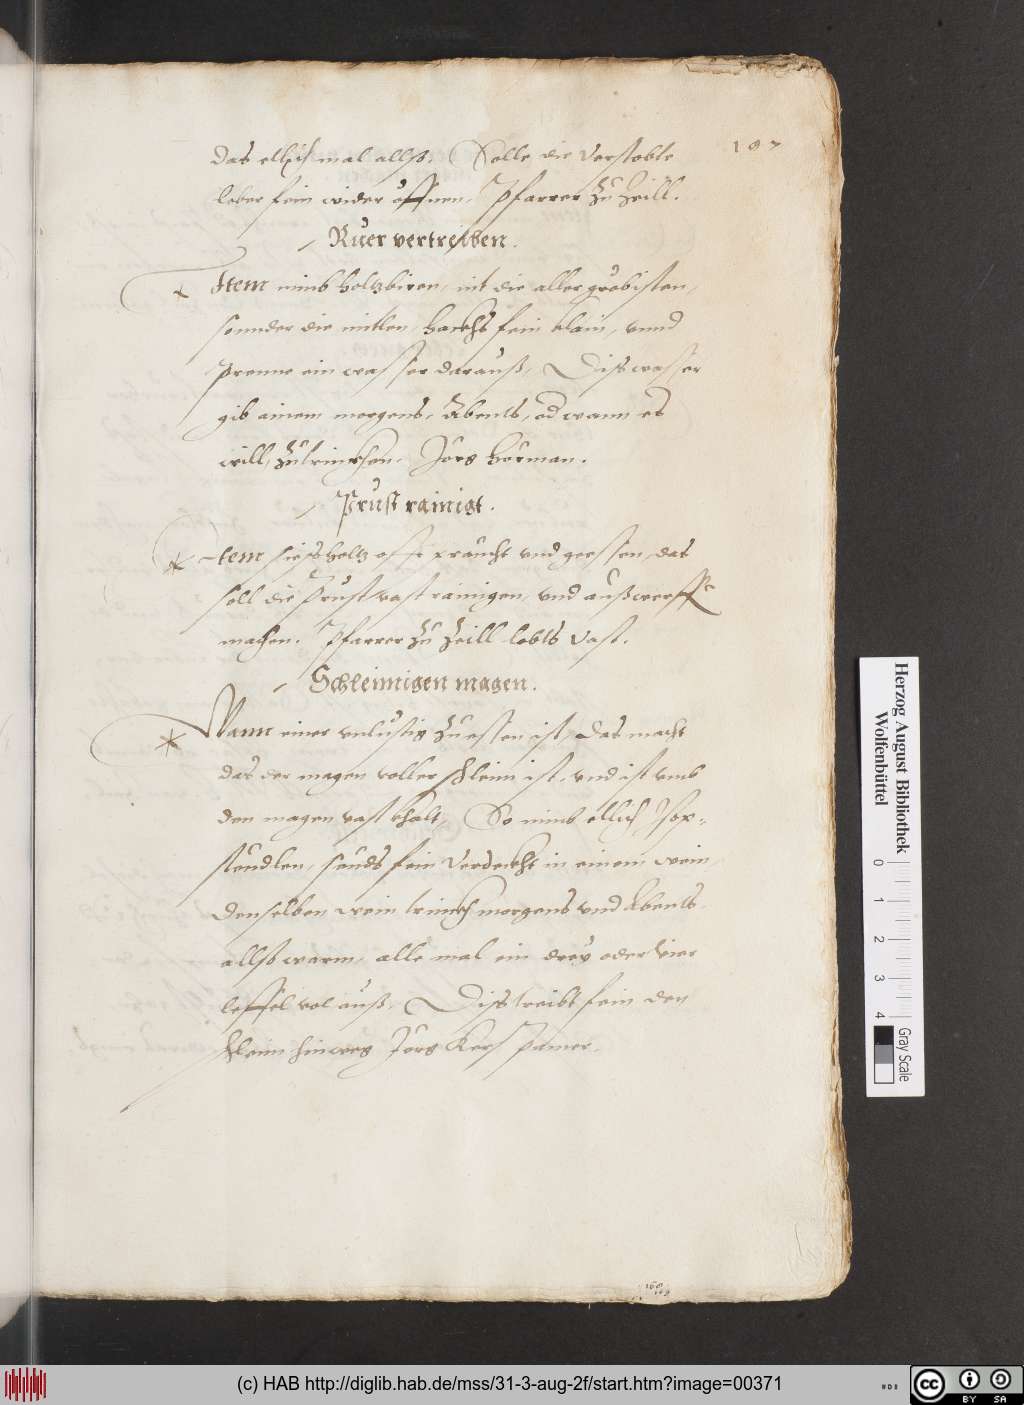 187
das etlich mal allso. Solle die verstobte
leber fein wider öffnen. Pfarrer zu Zeill.
Ruer vertreiben.
Item nimb holtzbiren, nit die aller grobisten,
sonnder die mitlen, hackhs fein klain, vnnd
prenne ein wasser darauß, Diss wasser
gib ainem morgens, Abents, od wann es
will, zu trinckhen. Jörg Hörman.
Prust rainigt.
Item siessholtz offt praucht vnd geessen, das
soll die Prust vast rainigen, vnd außwerffe
machen. Pfarrer zu Zeill lobts vast.
Schleimigen magen.
Wann einer vnlustig zu essen ist, Das macht
das der magen voller schleim ist, vnd ist vmb
den magen vast khalt, So nimb etlich Isop-
steudlen, seuds fein verdeckht in einem wein,
denselben wein trinckh morgens vnd Abents
allso warm, alle mal ein drey oder vier
leffel vol auß, Diss treibt fein den
schleim hinweg Jörg
Herzog August Bibliothek
Wolfenbüttel
0 1 2 3 4
Gray Scale
(c) HAB http://diglib.hab.de/mss/31-3-aug-2f/start.htm?image=00371
cc BY SA